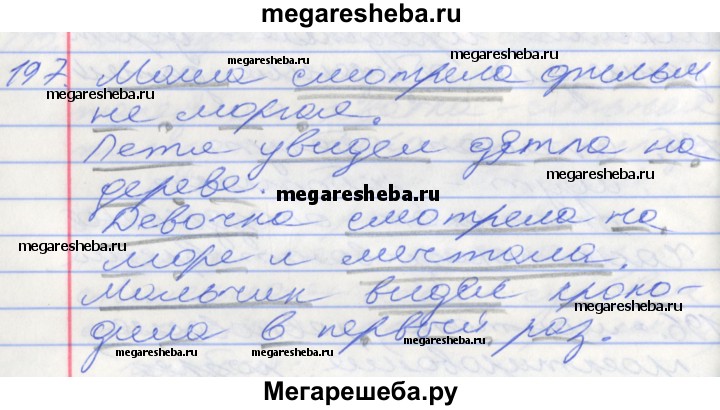 megaresheba.ru
megaresheba.ru megaresheba.ru
197. Маша смотрела фильм
megaresheba.ru
не моргая.
megaresheba.ru megaresheba.ru
Петя увидел дятла на
дереве.
megaresheba.ru
Девочка смотрела на
megaresheba.ru megaresheba.ru
море и мечтала.
Мальчик видел кроко-
megaresheba.ru
дила в первый раз.
megaresheba.ru megaresheba.ru megaresheba.ru
Мегарешеба.ру